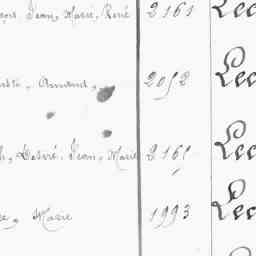 Jean, Marie, René 2161 Lec
Amand, 2052 Lec
Désiré, Jean, Marie 2165 Lec
Marie 1993 Lec